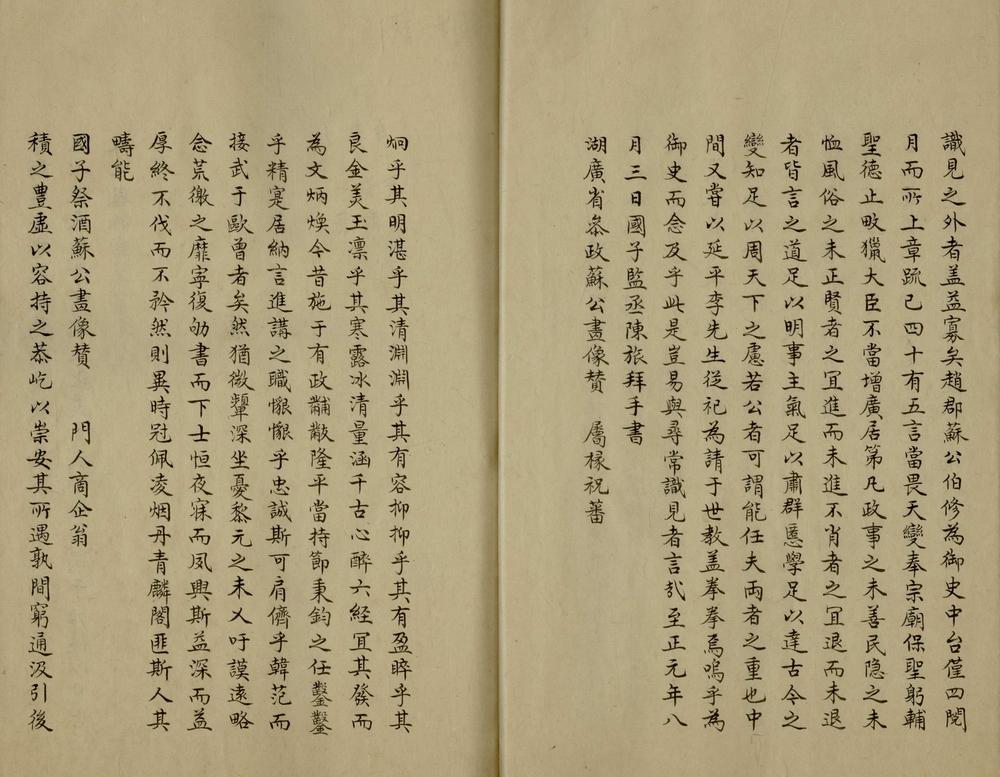 識見之外者盖益寡矣趙郡蘇公伯修為御史中台僅四閱
月而所上章疏已四十有五言當畏天變奉宗廟保聖躬輔
聖德止畋獵大臣不當增廣居第凡政事之未善民隐之未
恤風俗之未正賢者之冝進而未進不肖者之冝退而未退
者皆言之道足以明事主氣足以肅群慝學足以達古今之
變知足以周天下之慮若公者可謂能任夫兩者之重也中
間又嘗以延平李先生従祀為請于世教盖拳拳焉嗚乎為
御史而念及乎此是豈易與尋常識見者言㢤至正元年八
月三日國子監丞陳旅拜手書
湖廣省叅政蘇公畫像賛 屬椽祝蕃
炯乎其明湛乎其清淵淵乎其有容抑抑乎其有盈睟乎其
良金美玉凛乎其寒露冰清量涵千古心醉六経冝其發而
為文炳煥今昔施于有政黼黻隆平當持節秉鈞之任鑿鑿
乎精寔居納言進講之職懇懇乎忠誠斯可肩儕乎韓范而
接武于歐曾者矣然猶微顰深坐憂黎元之未乂吁謨遠略
念荒徼之靡寧復劬書而下士恒夜寐而夙興斯益深而益
厚終不伐而不矜然則異時冠佩凌烟丹青麟閣匪斯人其
疇能
國子祭酒蘇公畫像賛 門人商企翁
積之豊虚以容持之恭屹以崇安其所遇孰間窮通汲引後